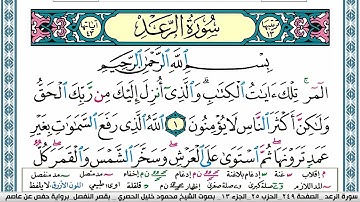 ترتيبها ١٣
سُورَةُ الرَّعْدِ
آياتها ٤٣
بِسْمِ اللَّهِ الرَّحْمَٰنِ الرَّحِيمِ
الٓمٓر ۚ تِلْكَ ءَايَٰتُ الْكِتَٰبِ ۗ وَالَّذِىٓ أُنزِلَ إِلَيْكَ مِن رَّبِّكَ الْحَقُّ
وَلَٰكِنَّ أَكْثَرَ النَّاسِ لَا يُؤْمِنُونَ ١ اللَّهُ الَّذِى رَفَعَ السَّمَٰوَٰتِ بِغَيْرِ
عَمَدٍ تَرَوْنَهَا ۖ ثُمَّ اسْتَوَىٰ عَلَى الْعَرْشِ ۖ وَسَخَّرَ الشَّمْسَ وَالْقَمَرَ ۖ كُلٌّ
سورة الرعد الصفحة ٢٤٩ الحزب ٢٥ الجزء ١٣ بصوت الشيخ محمود خليل الحصري بقصر المنفصل برواية حفص عن عاصم